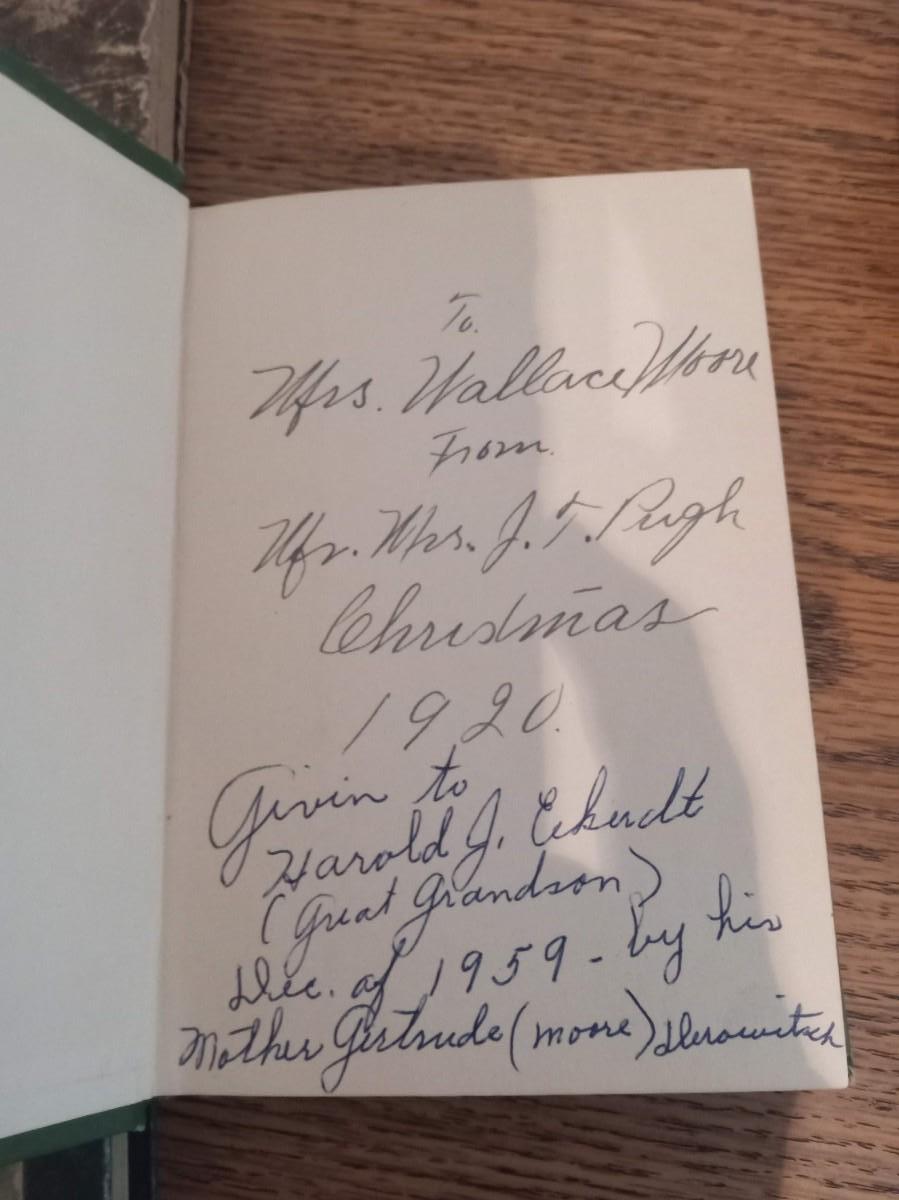 To.
Mrs. Wallace Moore
From.
Mr. Mrs. J. T. Pugh
Christmas
1920.
Givin to
Harold J. Eckerdt
(Great Grandson)
Dec. of 1959 - by his
Mother Gertrude (Moore) Derowitsch